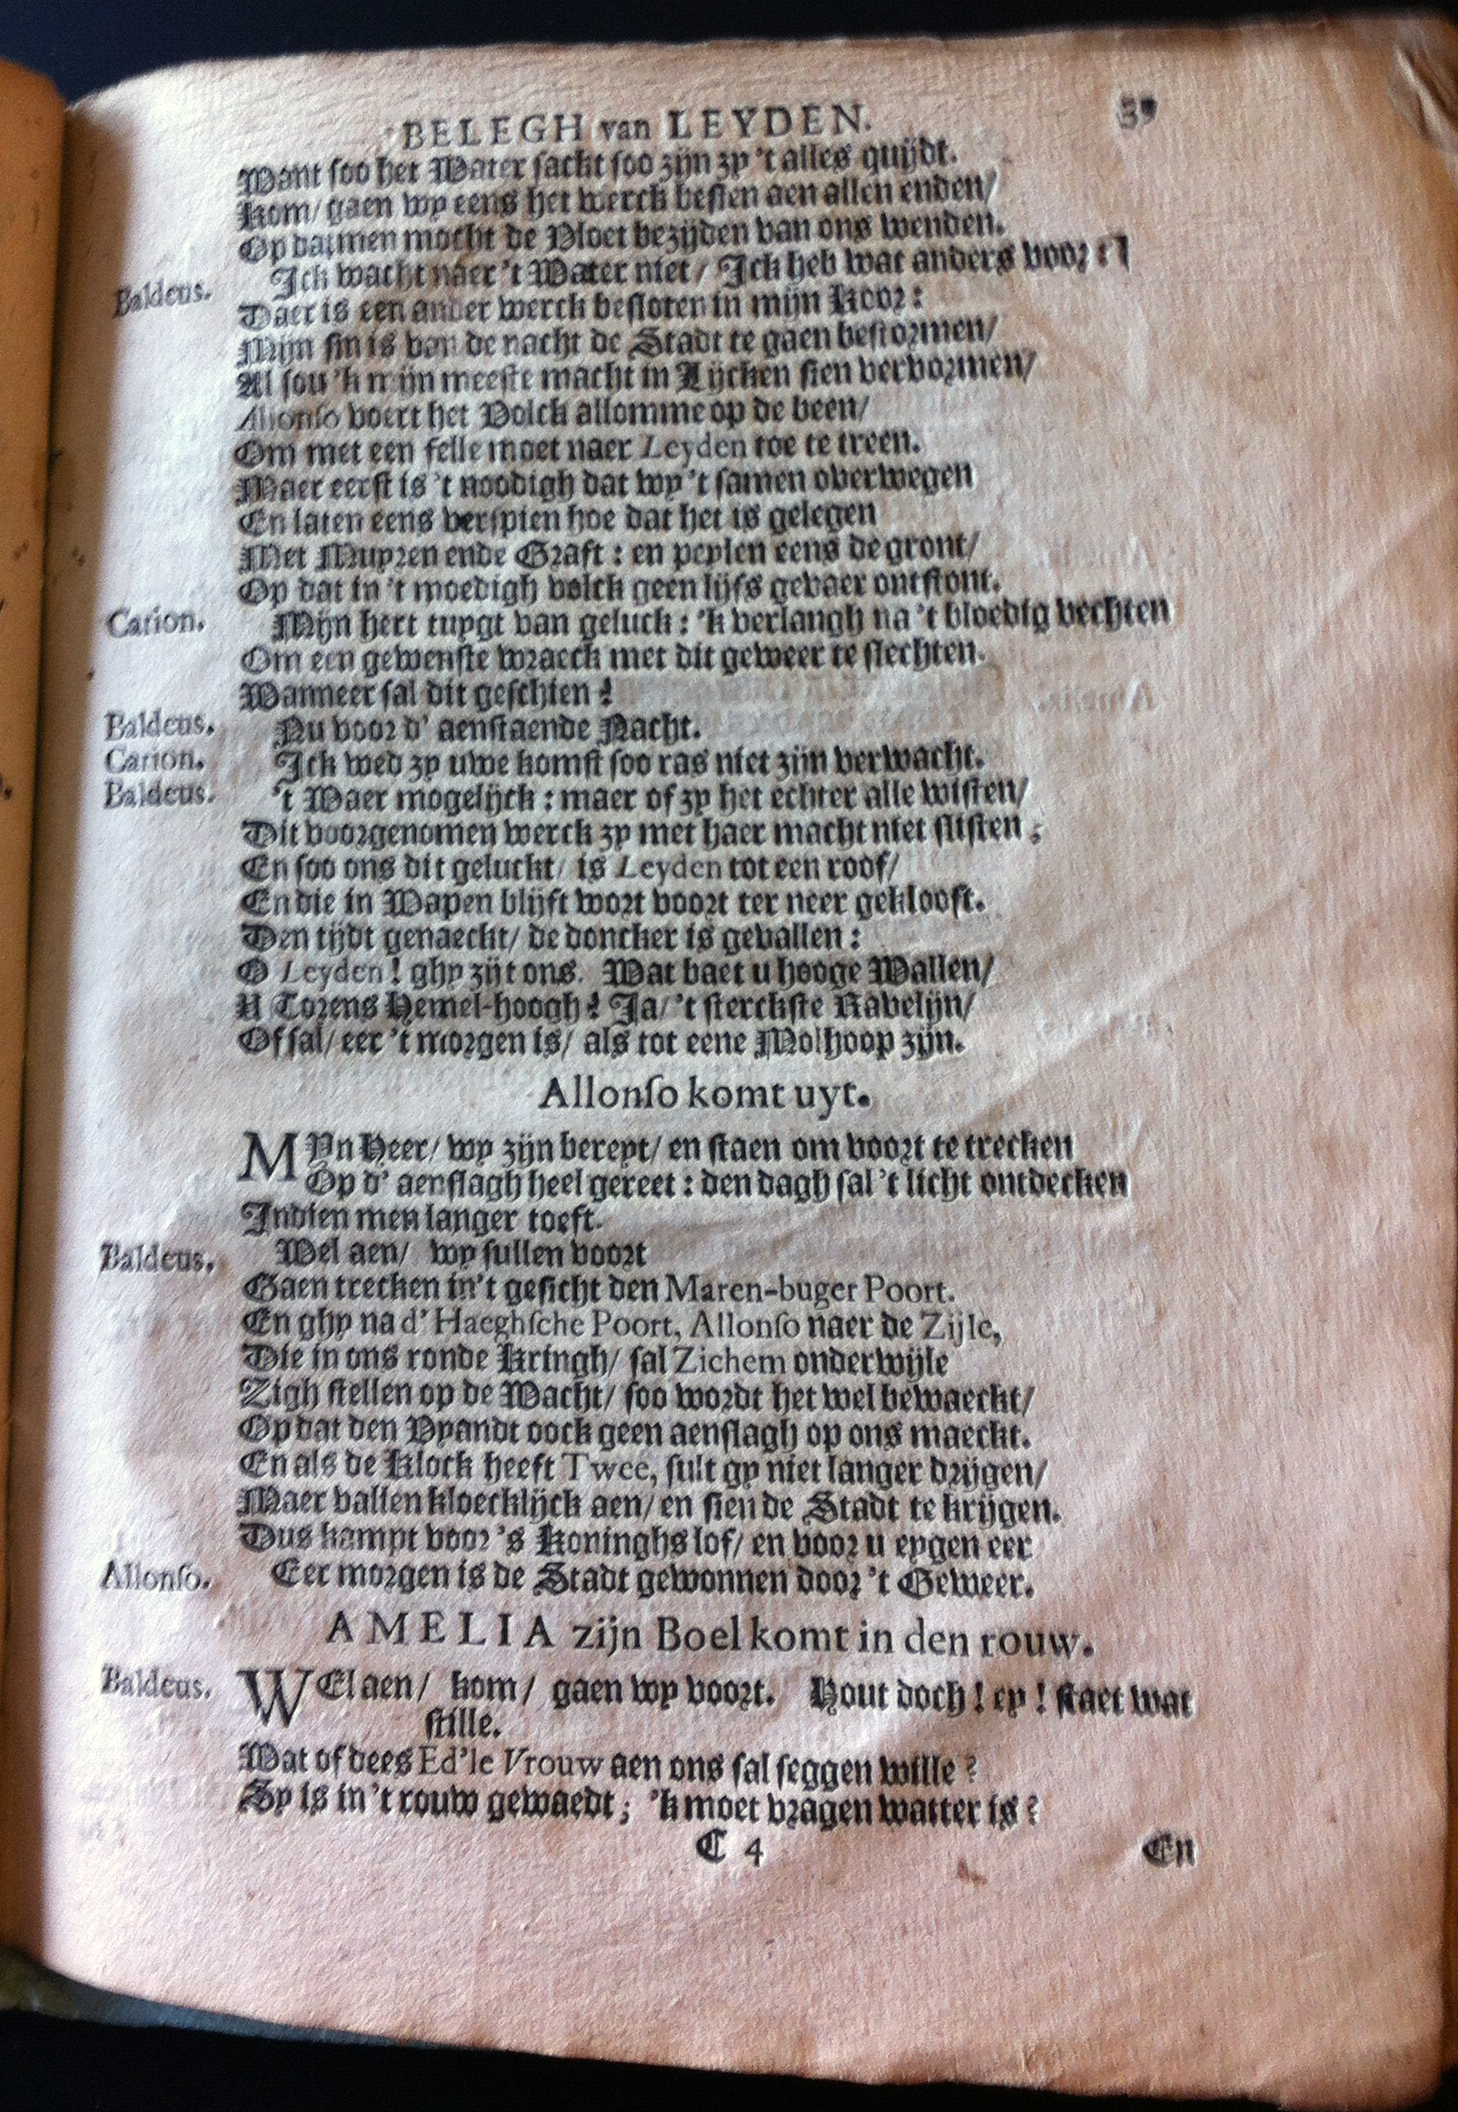 BELEGH van LEYDEN. 39
Want soo het Water sackt soo zijn zy 't alles quijdt.
Kom/ gaen wy eens het werck besien aen allen enden/
Op datmen mocht de Vloet bezijden van ons wenden.
Baldeus. Ick wacht naer 't Water niet/ Ick heb wat anders voor:
Daer is een ander werck besloten in mijn Koor:
Mijn sin is van de nacht de Stadt te gaen bestormen/
Al sou 'k mijn meeste macht in Lijcken sien vervormen/
Allonso voert het Volck allomme op de been/
Om met een felle moet naer Leyden toe te treen.
Maer eerst is 't noodigh dat wy 't samen overwegen
En laten eens verspien hoe dat het is gelegen
Met Muyren ende Graft: en peylen eens de gront/
Op dat in 't moedigh volck geen lijfs gevaer ontstont.
Carion. Mijn hert tuygt van geluck: 'k verlangh na 't bloedig vechten
Om een gewenste wraeck met dit geweer te slechten.
Wanneer sal dit geschien?
Baldeus. Nu voor d' aenstaende Nacht.
Carion. Ick wed zy uwe komst soo ras niet zijn verwacht.
Baldeus. 't Waer mogelijck: maer of zy het echter alle wisten/
Dit voorgenomen werck zy met haer macht niet slisten;
En soo ons dit geluckt/ is Leyden tot een roof/
En die in Wapen blijft wort voort ter neer geklooft.
Den tijdt genaeckt/ de doncker is gevallen:
O Leyden! ghy zijt ons. Wat baet u hooge Wallen/
U Torens Hemel-hoogh? Ja/ 't sterckste Ravelijn/
Of sal/ eer 't morgen is/ als tot eene Molhoop zijn.
Allonso komt uyt.
MYn Heer/ wy zijn bereyt/ en staen om voort te trecken
Op d' aenslagh heel gereet: den dagh sal 't licht ontdecken
Indien men langer toeft.
Baldeus. Wel aen/ wy sullen voort
Gaen trecken in 't gesicht den Maren-buger Poort.
En ghy na d' Haeghsche Poort, Allonso naer de Zijle,
Die in ons ronde Kringh/ sal Zichem onderwijle
Zigh stellen op de Wacht/ soo wordt het wel bewaeckt/
Op dat den Vyandt oock geen aenslagh op ons maeckt.
En als de Klock heeft Twee, sult gy niet langer drijgen/
Maer vallen kloecklijck aen/ en sien de Stadt te krijgen.
Dus kampt voor 's Koninghs lof/ en voor u eygen eer
Allonso. Eer morgen is de Stadt gewonnen door 't Geweer.
AMELIA zijn Boel komt in den rouw.
Baldeus. WEl aen/ kom/ gaen wy voort. Hout doch! ey! staet wat
stille.
Wat of dees Ed'le Vrouw aen ons sal seggen wille?
Sy is in 't rouw gewaedt; 'k moet vragen watter is?
C 4 En